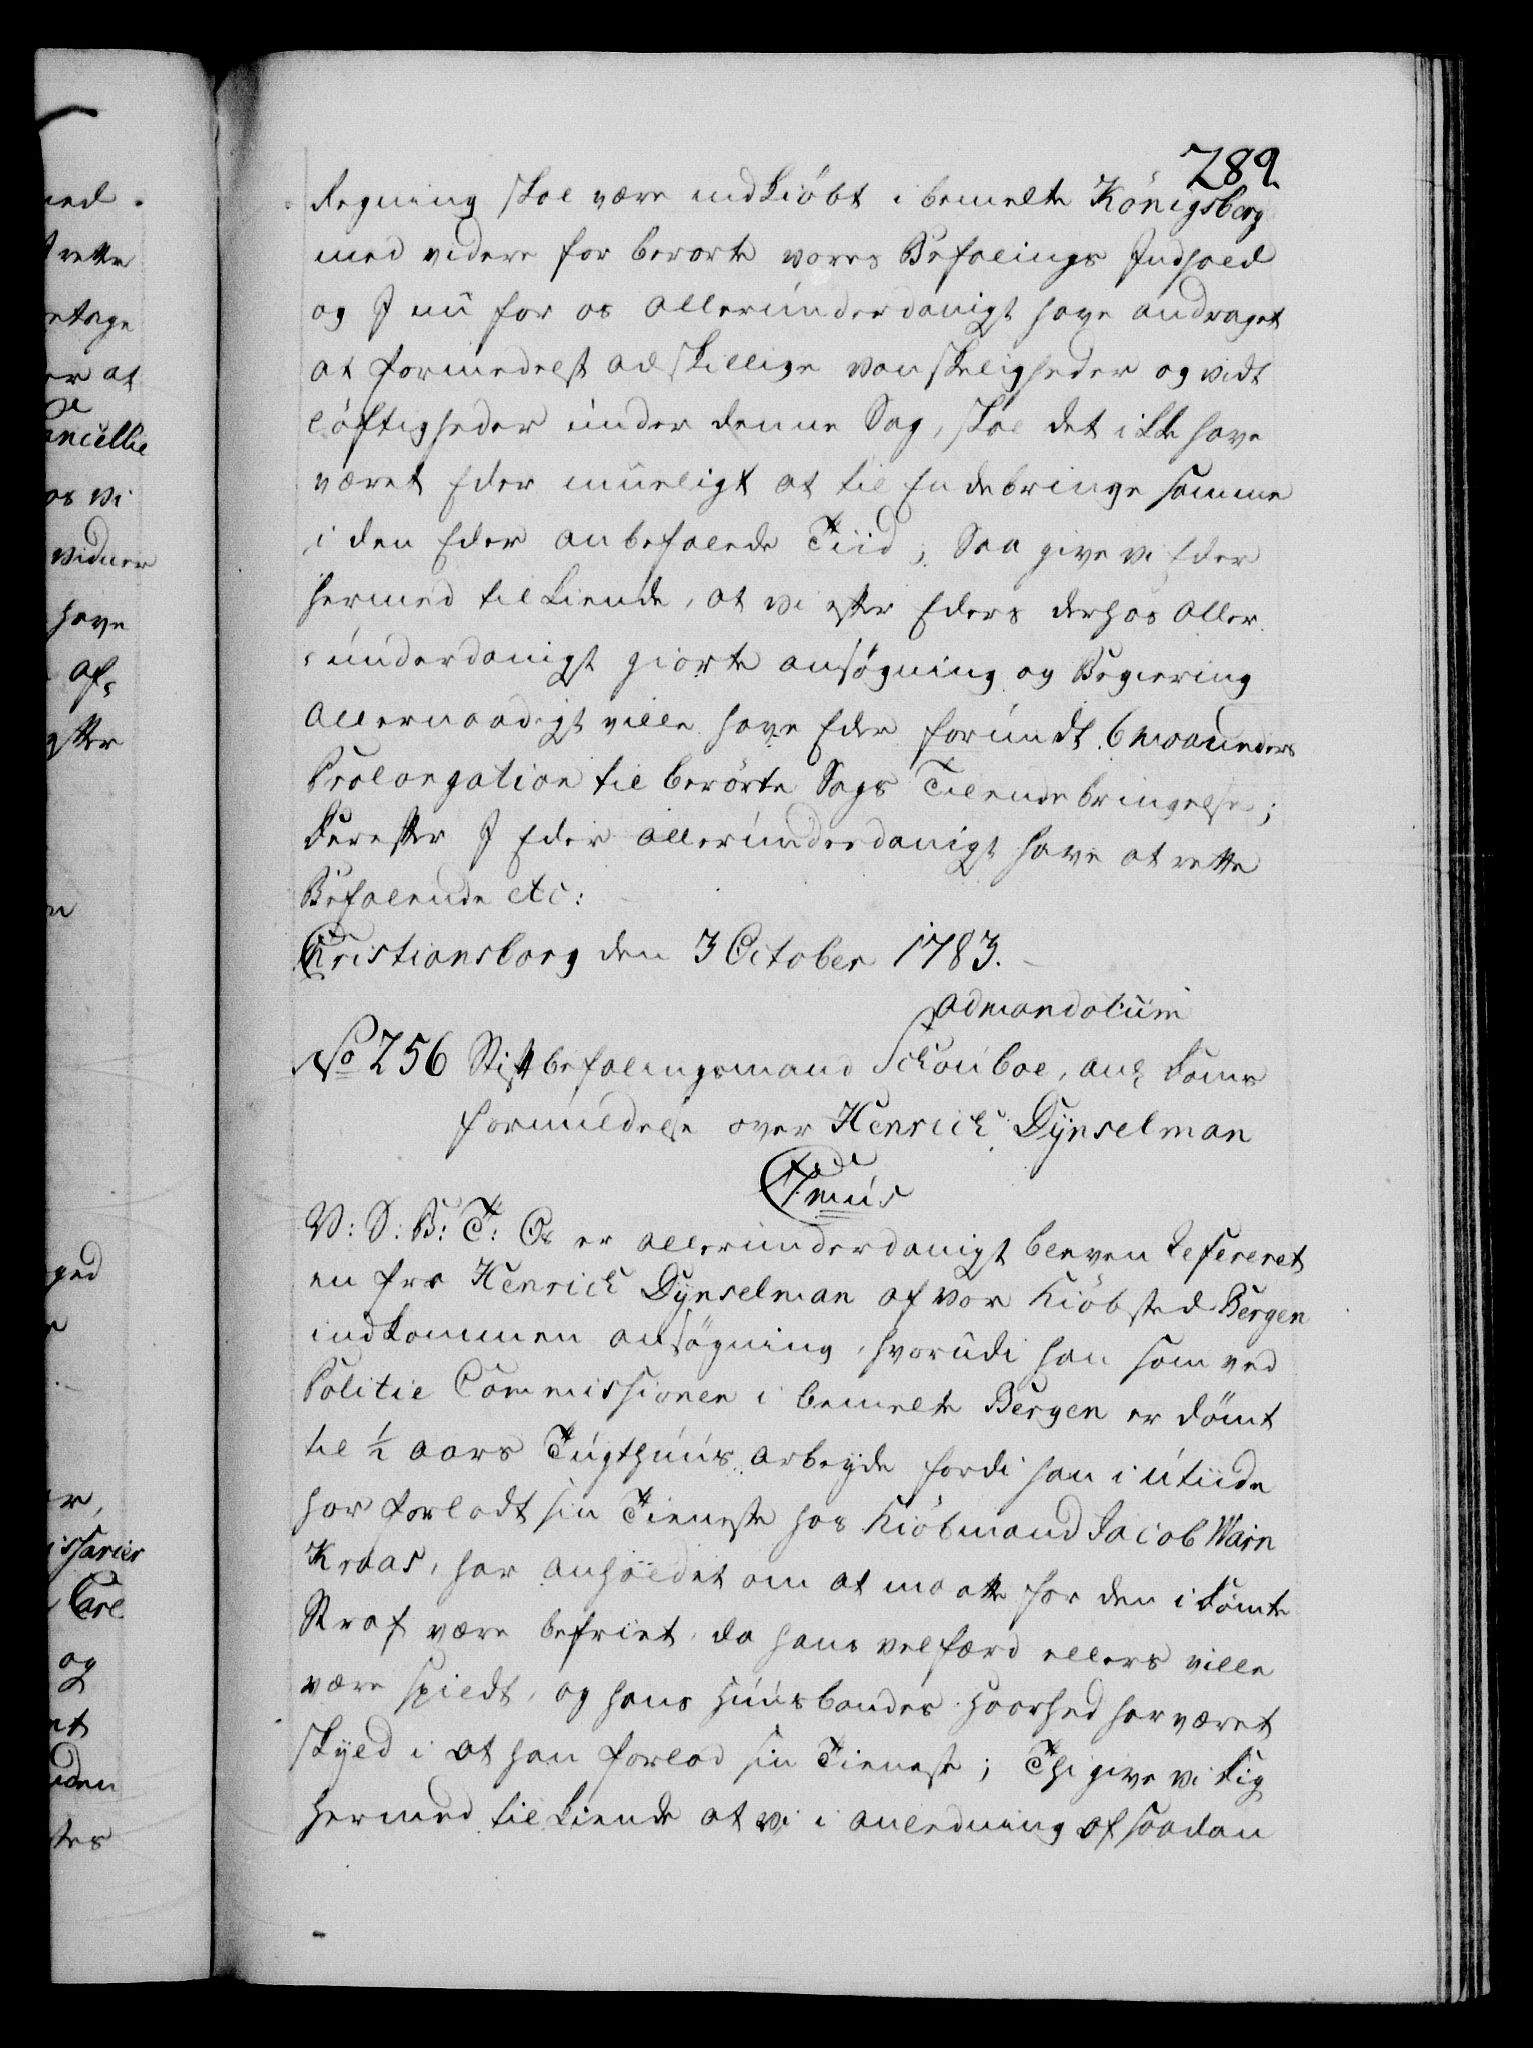 289.
Regning skal være indkiöbt i bemelte Königsberg
med videre for berørte vores Befalings Indhold
og I nu for os allerúnderdanigst have andraget
at formedelst adskillige vanskeligheder og vidt
löftigheder únder denne Sag, skal det ikke have
været Eder mueligt at til Endebringe samme
i den Eder anbefalede Tiid; Saa give vi Eder
hermed tilkiende, at vi efter Eders derhos aller
únderdanigst giorte ansögning og Begiering
allernaadigst ville have Eder forúndt 6 maaneders
Prolongation til berörte Sags Tilendebringelse;
derefter I Eder allerúnderdanigst have at rette
Befalende etc:
Christiansborg den 3 October 1783.
admandatum
No 256 Stiftbefalingsmand Schouboe, ang Doms
formildelse over Henrich Dÿnselman
V: S: B: T: Os er allerúnderdanigst bleven refereret
en fra Henrich Dÿnselman af vor Kiöbsted Bergen
indkommen ansögning, hvorúdi han som ved
Politie Commissionen i bemelte Bergen er dömt
til ½ aars Túgthúús arbeÿde fordi han i útiide
har forladt sin Tieneste hos Kiöbmand Jacob Warn
Kraas, har anholdet om at maatte for den idömte
Straf være befriet, da hans velfærd ellers ville
være spildt, og hans Húúsbondes Haarhed har været
skÿld i at han forlod sin Tieneste; Thi give vi dig
hermed tilkiende at vi i anledning af saadan